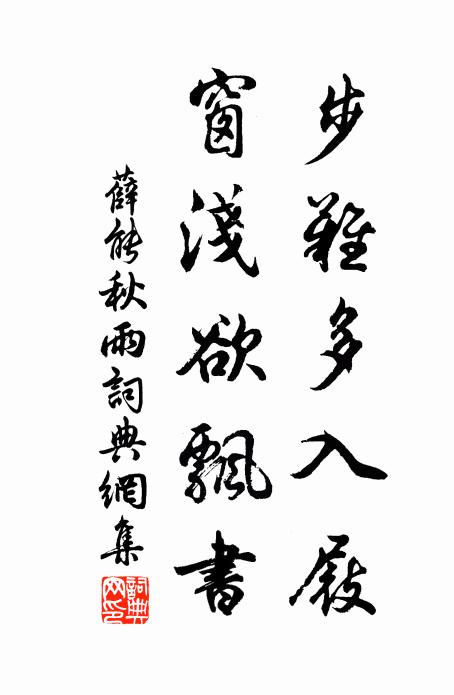 步難多入屐
窗淺欲飄書
薛能秋雨詞典網集